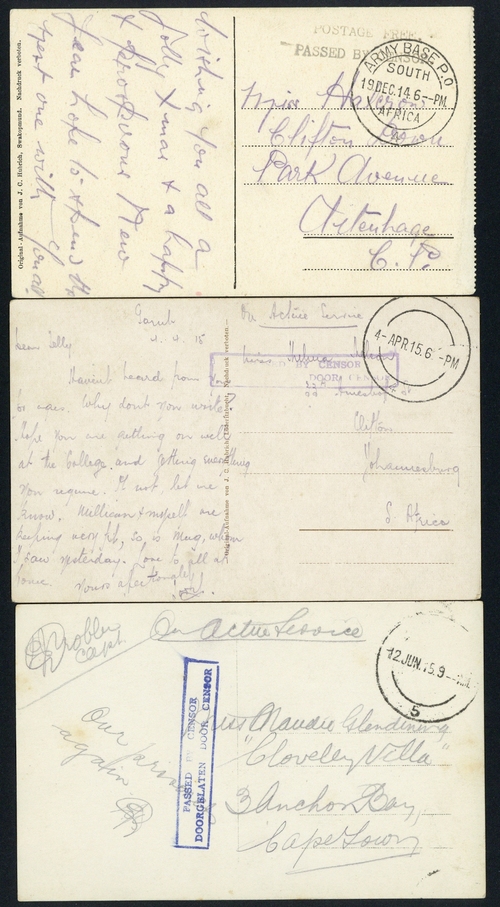 wishing you all a
jolly Xmas & a happy
& prosperous New
Year hope to spend the
next one with you all
Original-Aufnahme von J. C. Hubrich, Swakopmund. Nachdruck verboten.
POSTAGE FREE.
PASSED BY CENSOR
ARMY BASE P.O
SOUTH
19 DEC.14.6-PM.
AFRICA
Miss
Clifton
Park Avenue
Uitenhage
C.P.
Garub
4.4.15
Dear Nelly
Havent heard from you
for ages. Why dont you write
Hope you are getting on well
at the College and getting everything
you require. If not let me
know. Millican & myself are
keeping very fit, so is Mug, whom
I saw yesterday. Love to all at
home. Yours affectionately
On Active Service
4-APR15.6-PM
PASSED BY CENSOR
DOOR CENSOR
Miss Helena
Clifton
Johannesburg
S. Africa
Nachdruck verboten.
Original-Aufnahme von J. C. Hubrich
Capt.
On Active Service
12 JUN.15.9
5
PASSED BY CENSOR
DOORGELATEN DOOR CENSOR
Our
again
Miss Maudie Glendining
"Cloveley Villa"
3 Anchor Bay
Cape Town